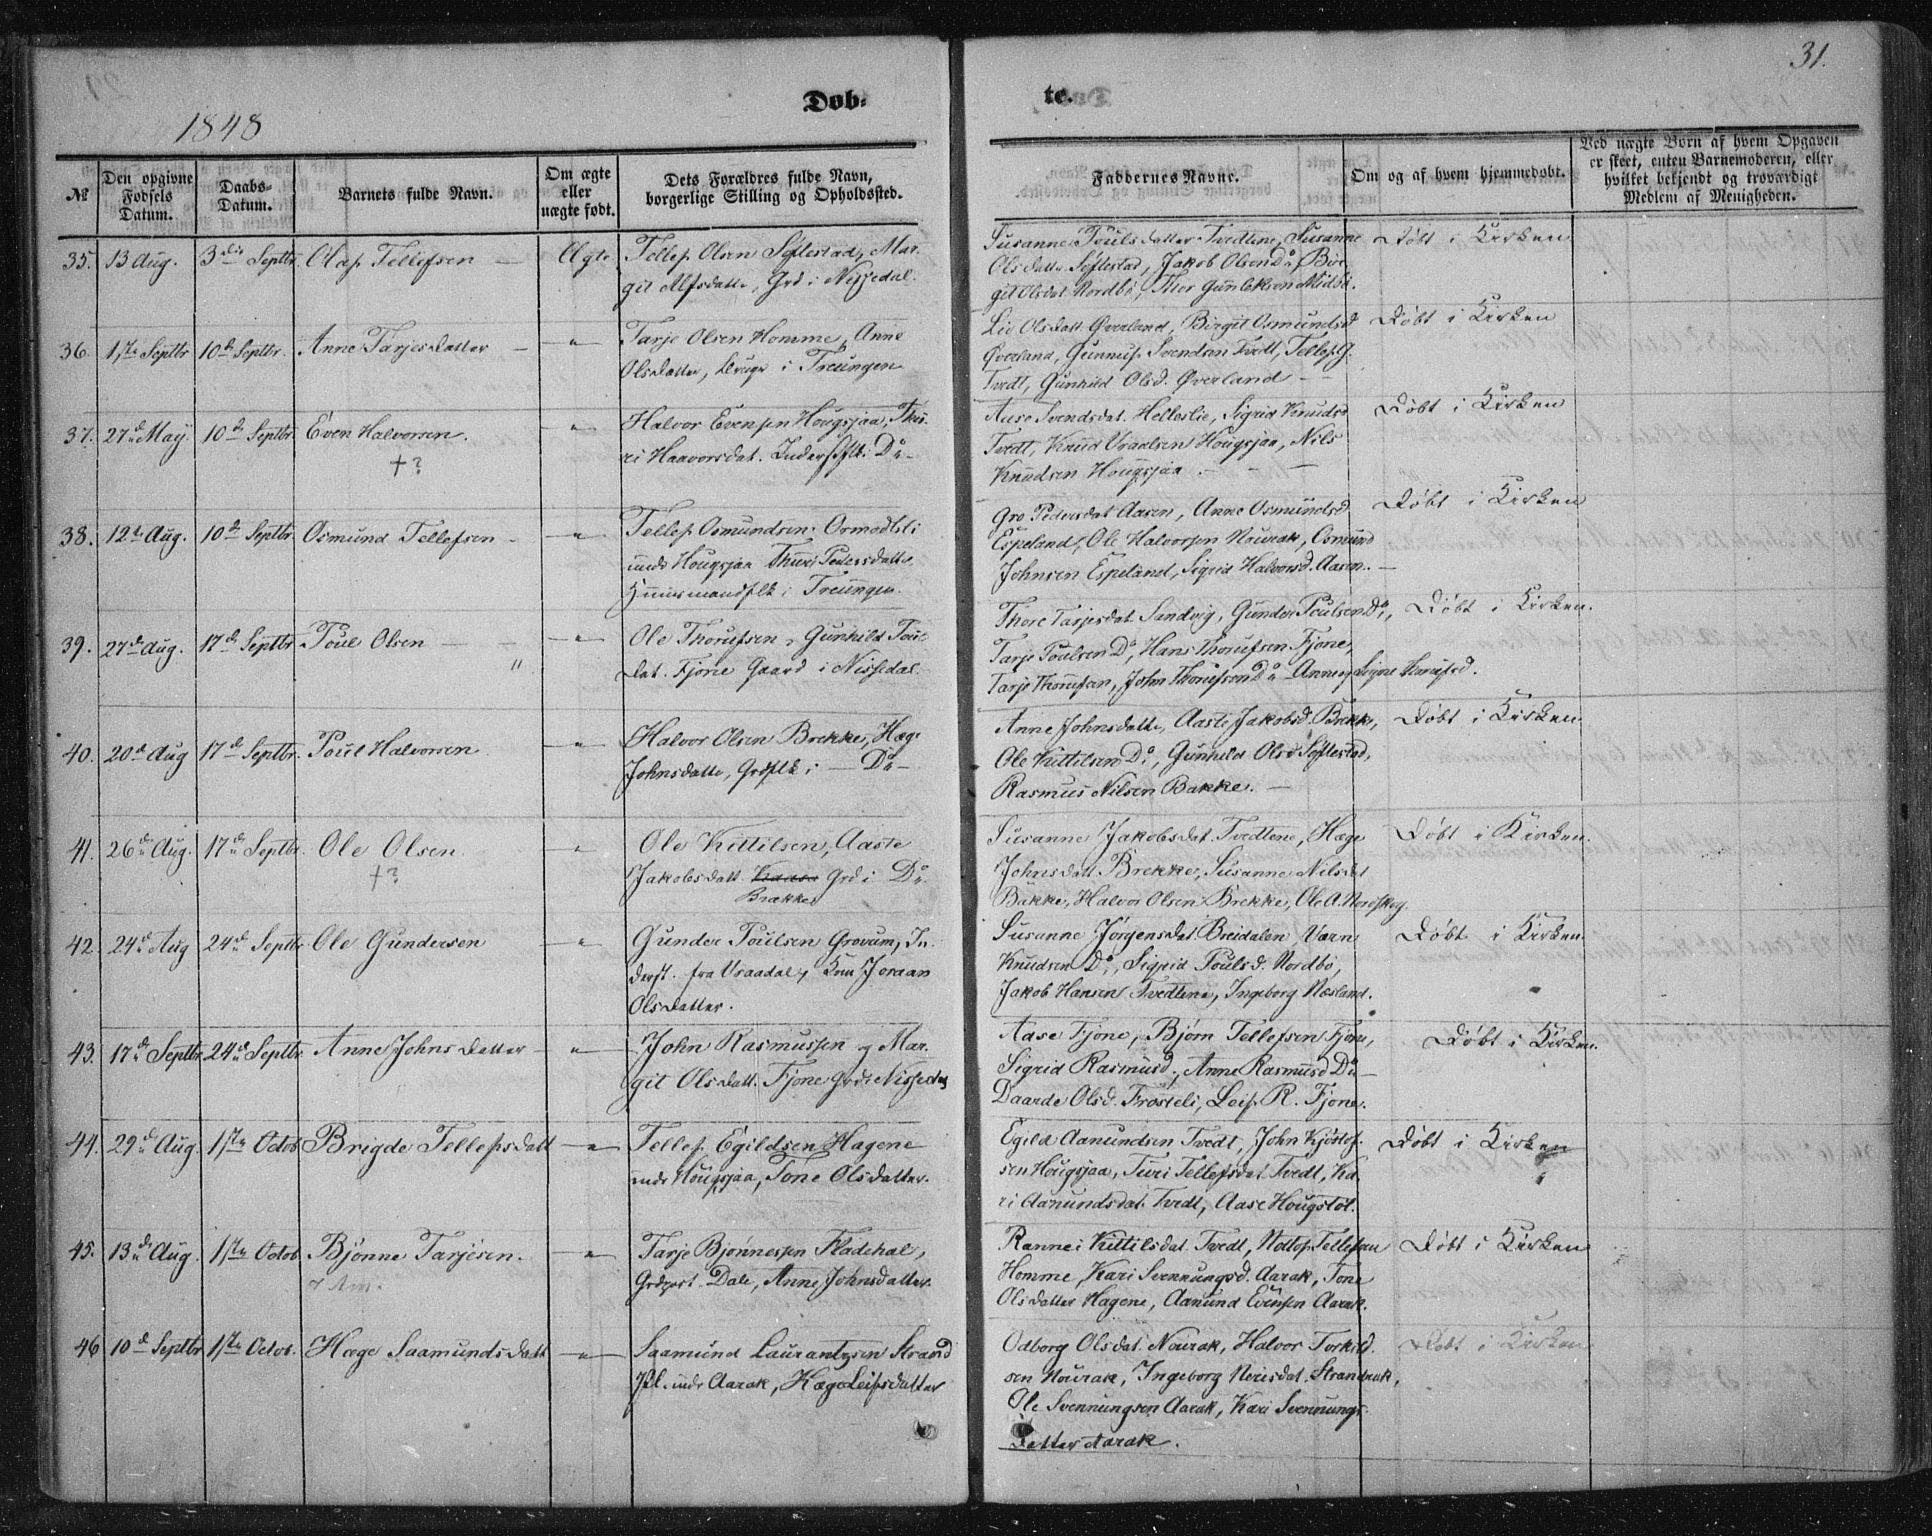 31.
Døb-
te.
1848
№
Den opgivne
Fødsels
Datum.
Daabs-
Datum.
Barnets fulde Navn.
Om ægte
eller
uægte født.
Dets Forældres fulde Navn,
borgerlige Stilling og Opholdssted.
Faddernes Navne.
Om og af hvem hjemmedøbt.
Ved uægte Børn af hvem Opgaven
er skeet, enten Barnemoderen, eller
hvilket bekjendt og troværdigt
Medlem af Menigheden.
35. 13 Aug. 3die Septbr. Olaf Tellefsen Ægte
Tellef Olsen Søftestad, Mar-
git Alfsdatter, Grd i Nissedal.
Susanne Poulsdatter Tvedtene, Susanne
Olsdatter Søftestad, Jakob Olsen Do, Bir-
git Olsdat. Nordbø, Thor Gunleksen Midbø.
Døbt i Kirken
36. 1ste Septbr 10de Septbr. Anne Tarjesdatter — "
Tarje Olsen Homme, Anne
Olsdatter, Bruge i Treungen
Liv Olsdatt. Øverland, Birgit Osmundsd
Øverland, Gunnuf Svendsen Tvedt, Tellef G.
Tvedt, Gunhild Olsd. Øverland —
Døbt i Kirken
37. 27de May. 10de Septbr. Even Halvorsen. "
† ?
Halvor Evensen Hougsjaa, Thu-
ri Haavorsdat. Inderstflk i Do
Aase Svendsdat. Helleslie, Sigrid Knuds
Tvedt, Knud Vraalsen Hougsjaa, Nils
Knudsen Hougsjaa
Døbt i Kirken
38. 12te Aug. 10de Septbr. Osmund Tellefsen "
Tellef Osmundsen Ormodtsli
under Hougsjaa Thuri Pedersdatter
Huusmandsflk i Treungen.
Gro Pedersdat Aasen, Anne Osmundsd
Espeland, Ole Halvorsen Nourak, Osmund
Johnsen Espeland, Sigrid Halvorsd. Aasen. —
Døbt i Kirken
39. 27de Aug. 17de Septbr. Poul Olsen — "
Ole Thorufsen, Gunhild Poul-
dat. Fjone Gaard i Nissedal
Thore Tarjesdat Sandvig, Gunder Poulsen Do,
Tarje Poulsen Do, Hans Thorufsen Fjone,
Tarje Thorufsen, John Thorufsen Do Anne og Signe Thorufsd.
Døbt i Kirken.
40. 20de Aug 17de Septbr. Poul Halvorsen "
Halvor Olsen Brekke, Hæge
Johnsdatter, Grdflk i — Do —
Anne Johnsdatter, Aaste Jakobsd. Bakke,
Ole Kittilsen Do, Gunhild Olsd Søftestad,
Rasmus Nilsen Bakke. —
Døbt i Kirken
41. 26de Aug. 17de Septbr. Ole Olsen "
† ?
Ole Kittilsen, Aaste
Jakobsdatt. Grd i Do.
Brække
Susanne Jakobsdat. Tvedtene, Hæge
Johnsdatt Brekke, Susanne Nilsdat
Bakke, Halvor Olsen Brekke, Ole A. Nordskog.
Døbt i Kirken.
42. 24de Aug 24de Septbr Ole Gundersen "
Gunder Poulsen Grovum, In-
derst. fra Vraadal, Kone Joraan
Olsdatter.
Susanne Jørgensdat Breidalen, Værn
Knudsen Do, Sigrid Poulsd. Nordbø,
Jakob Hansen Tvedtene, Ingeborg Næsland.
Døbt i Kirken.
43. 17de Septbr. 24de Septbr. Anne Johnsdatter "
John Rasmussen og Mar-
git Olsdatt. Fjone Grd i Nissedal
Aase Fjone, Bjørn Tellefsen Fjone,
Sigrid Rasmusd., Anne Rasmusd Do —
Daarde Olsd. Frøsteli, Leif R. Fjone.
Døbt i Kirken.
44. 29de Aug. 1ste Octob. Brigde Tellefsdatt "
Tellef Egildsen Hagene
under Hougsjaa, Tone Olsdatter.
Egild Aanundsen Tvedt, John Kjøstof-
sen Hougsjaa, Turi Tellefsdat Tvedt, Ka-
ri Aanundsdat. Tvedt, Aase Hougstøl.
Døbt i Kirken
45. 13de Aug. 1ste Octob. Bjønne Tarjesen. "
Tarje Bjønnessen Fladehal,
Grdpart Dale, Anne Johnsdatter.
Rannei Kittilsdat. Tvedt, Nottof Tellefsen
Homme, Kari Svennungsd. Aarak, Tone
Olsdatter Hagene, Aanund Evensen Aarak.
Døbt i Kirken
46 10de Septbr 1ste Octob. Hæge Saamundsdatt "
Saamund Laurantzsen Strand
Pl. under Aarak, Hæge Leifsdatter
Odborg Olsdat. Nourak, Halvor Torkild-
sen Nourak, Ingeborg Nerisdat. Strandruk,
Ole Svennungsen Aarak, Kari Svennungs-
datter Aarak.
Døbt i Kirken